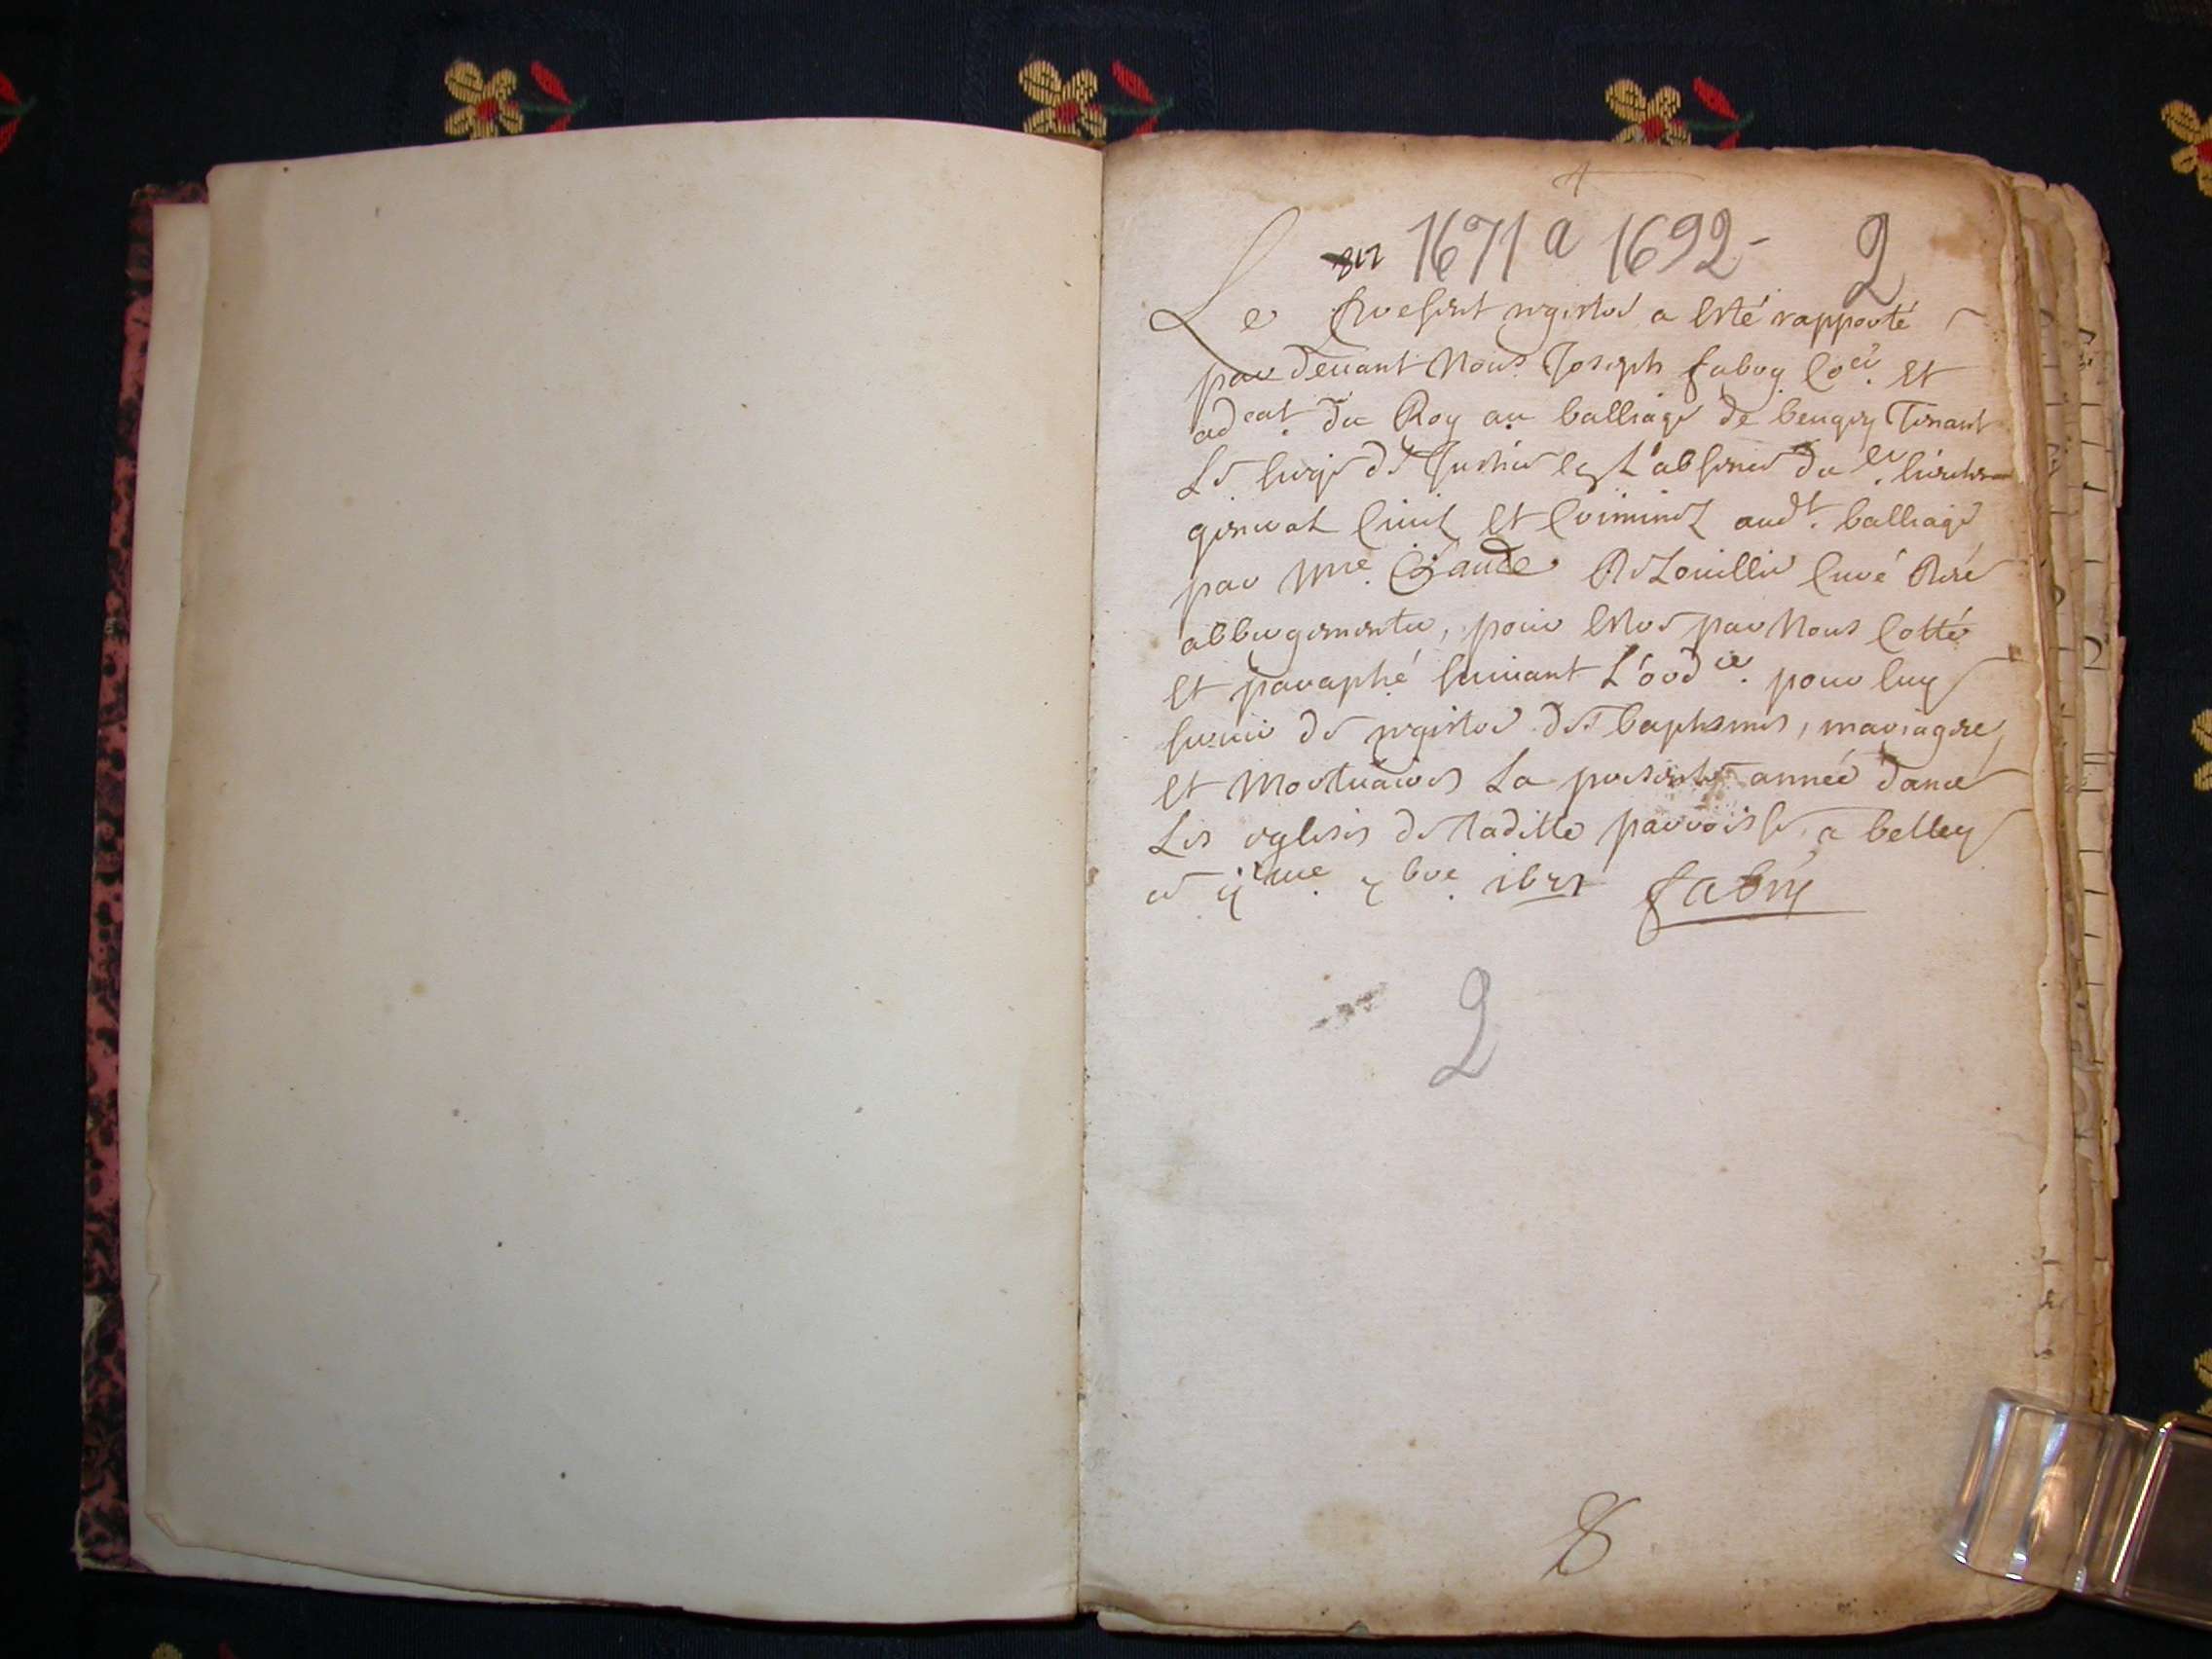 1671 a 1692 - 2
Le present registre a esté rapporté
par devant Nous Joseph fabry Coer. et
adcat. du Roy au balliage de beugey Tenant
Le siege de Justice en L'absence du sr. lieutena
general Civil et Criminel audt. balliage
par Mre. Claude curé
abbergementz, pour estre par Nous Cotté
et paraphé suivant L'ordce. pour luy
servir de registre des baptesmes, mariages
et Mortuaires La presente année dans
Les eglises de laditte parroisse, a belley
ce 7bre. 1671 fabry
2
8